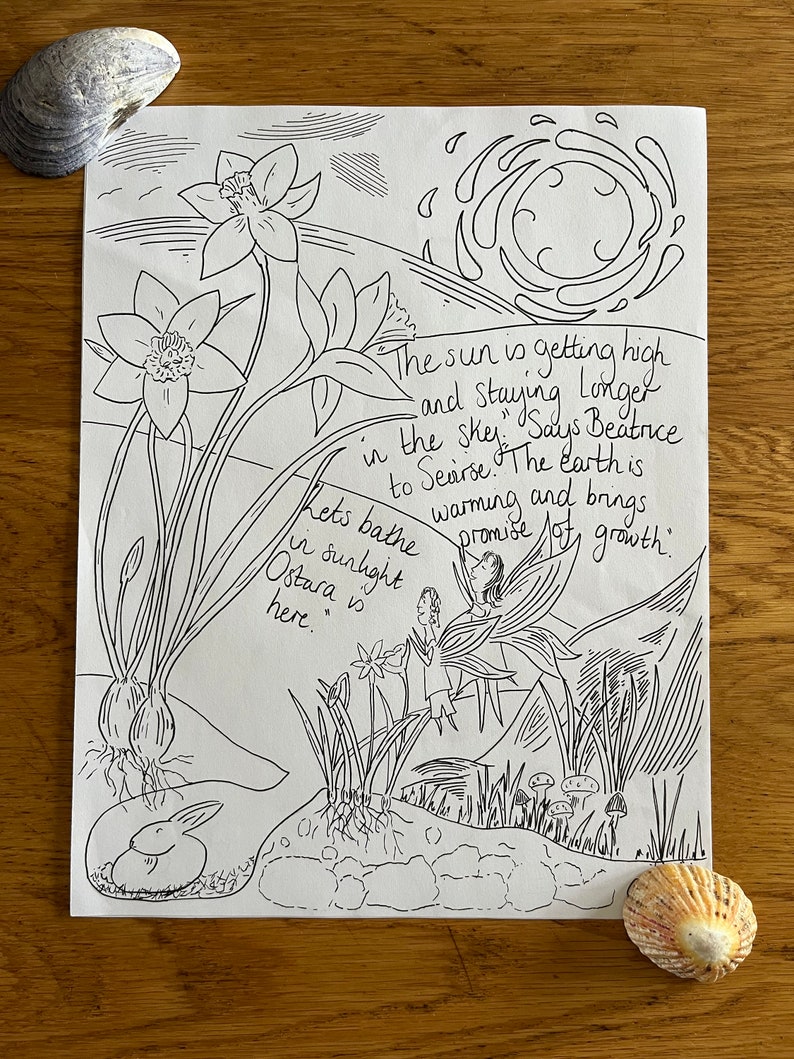 The sun is getting high
and staying longer
in the sky." Says Beatrice
to Seoirse. "The earth is
warming and brings
promise of growth".
Lets bathe
in sunlight
Ostara is
here."